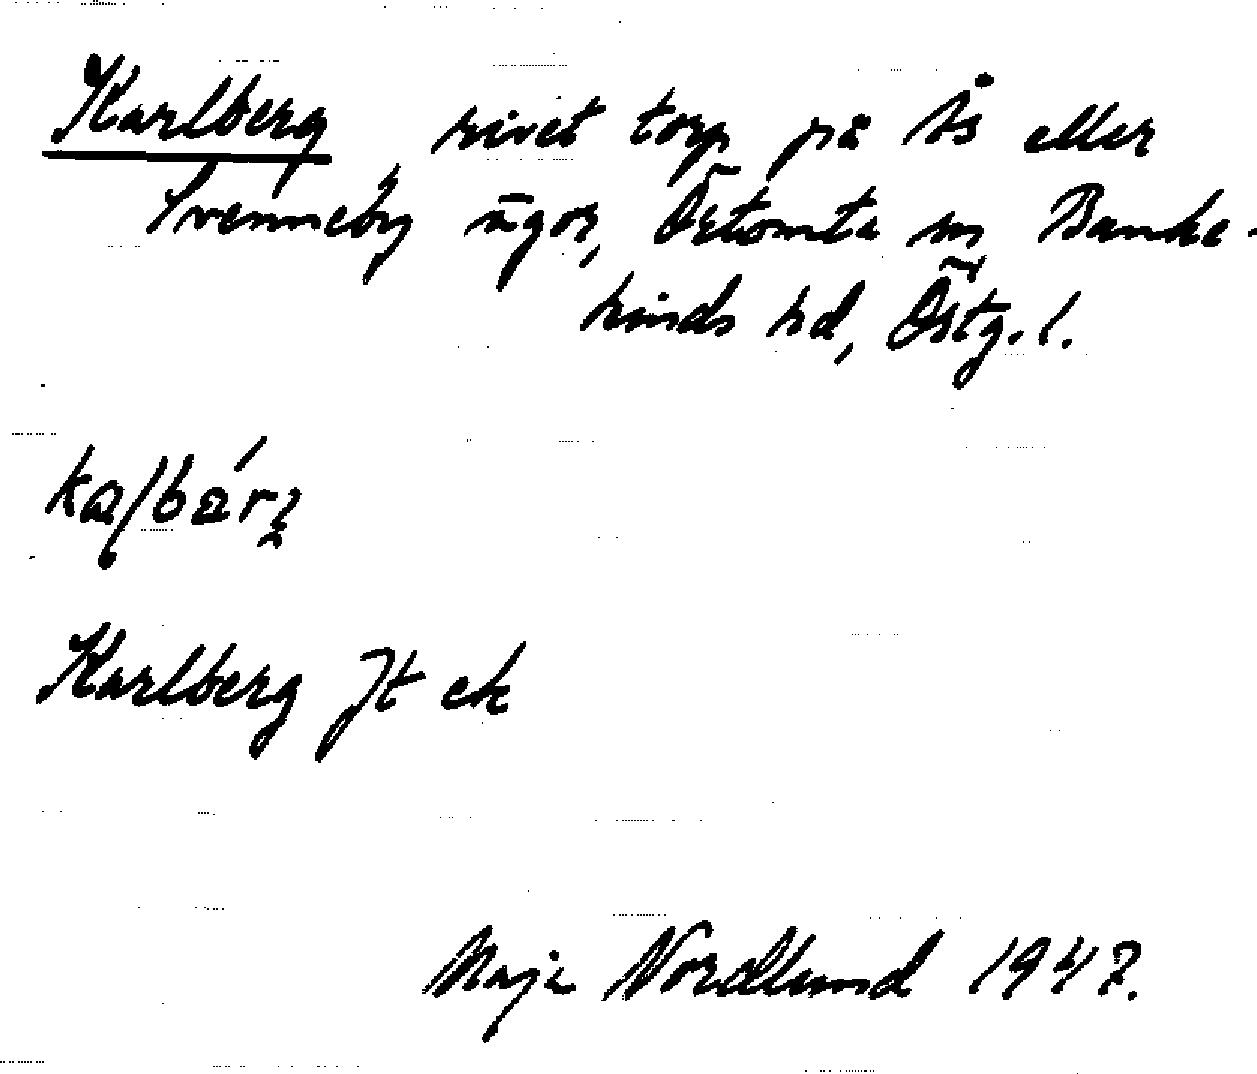 Karlberg, rivet torp på Ås eller
Svenneby ägor, Östomta sn Banke-
kinds hd, Östg. l.
Karlberg Jt ek
Maja Nordlund 1947.